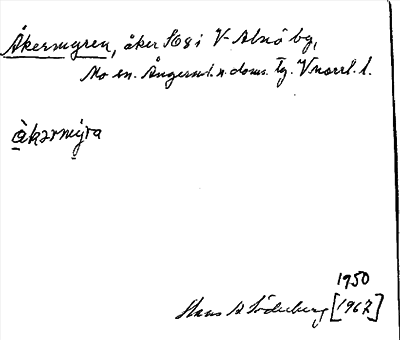 Åkermyren, åker 168 i V-Alnö by,
Mo sn. Ångerml. n. doms. tg. Vnorrl. l.
åkərmy̆ra
1950
Hans A Söderberg [1967]